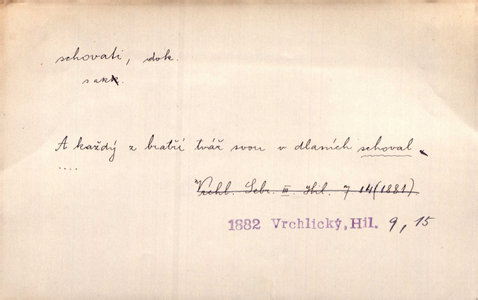 schovati, dok.
A každý z bratří tvář svou v dlaních schoval
....
Vrchl. Sebr. III. Hil. 7 14 (1881).
1882 Vrchlický, Hil. 9, 15